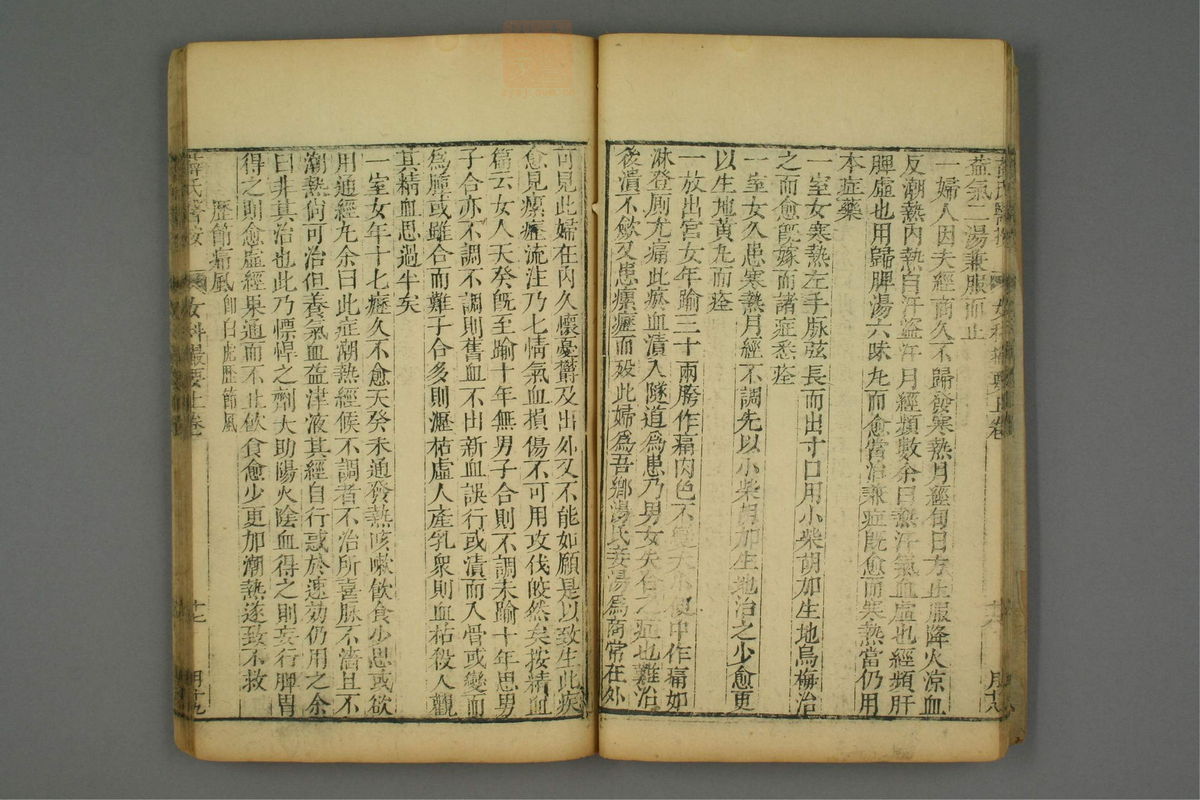 益氣二湯兼服而止
一婦人因夫經商久不歸發寒熱月經旬日方止服降火凉血
反潮熱內熱自汗盜汗月經頻數余曰熱汗氣血虛也經頻肝
脾虛也用歸脾湯六味丸而愈嘗治兼症既愈而寒熱當仍用
本症藥
一室女寒熱左手脉弦長而出寸口用小柴胡加生地烏梅治
之而愈既嫁而諸症悉痊
一室女久患寒熱月經不調先以小柴胡加生地治之少愈更
以生地黃丸而痊
一放出宮女年踰三十兩胯作痛肉色不變大小便中作痛如
淋登厠尤痛此瘀血漬入隧道爲患乃男女失合之症也難治
後潰不歛又患瘰癧而歿此婦爲吾鄉湯氏妾湯爲商常在外
可見此婦在內久懷憂欝及出外又不能如願是以致生此疾
愈見瘰癧流注乃七情氣血損傷不可用攻伐皎然矣按精血
篇云女人天癸既至踰十年無男子合則不調未踰十年思男
子合亦不調不調則舊血不出新血誤行或漬而入骨或變而
爲腫或雖合而難子合多則瀝枯虛人產乳衆則血枯殺人觀
其精血思過半矣
一室女年十七癧久不愈天癸未通發熱咳嗽飲食少思或欲
用通經丸余曰此症潮熱經候不調者不治所喜脉不濇且不
潮熱尚可治但養氣血益津液其經自行惑於速効仍用之余
曰非其治也此乃慓悍之劑大助陽火陰血得之則妄行脾胃
得之則愈虛經果通而不止飲食愈少更加潮熱遂致不救
歷節痛風即白虎歷節風
女科撮要上卷